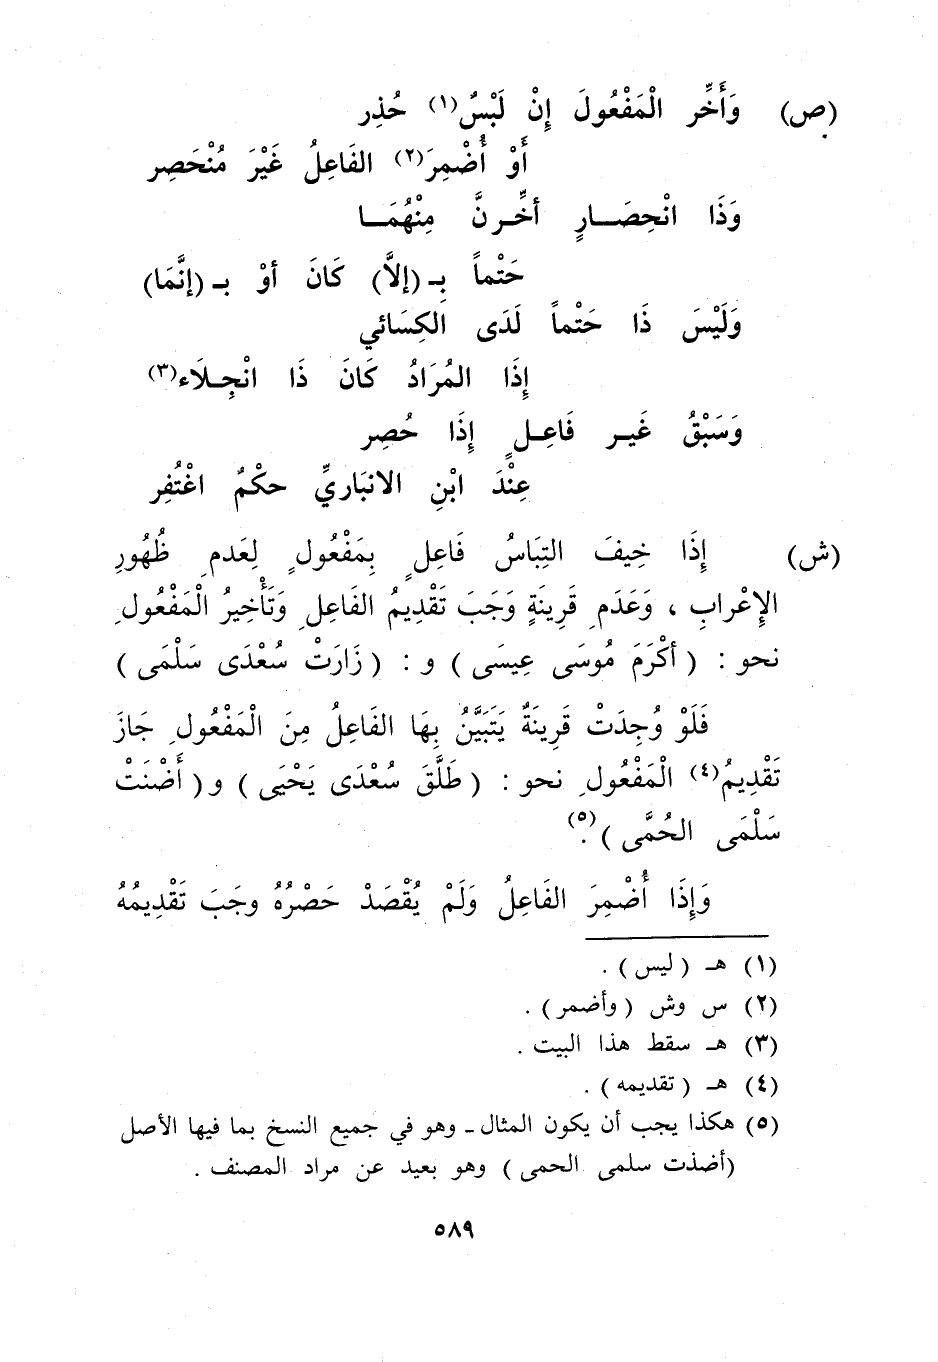 (ص) وَأَخِّر الْمَفْعُولَ إِنْ لَبْسٌ(١) حُذِر
أَوْ أُضْمِرَ(٢) الفَاعِلُ غَيْرَ مُنْحَصِر
وَذَا انْحِصَـــارٍ أخِّـرنَّ مِنْهُمَــا
حَتْماً بِـ (إلاَّ) كَانَ أوْ بـ (إنَّمَا)
وَلَيْسَ ذَا حَتْماً لَدَى الكِسَائي
إِذَا المُرَادُ كَانَ ذَا انْجِـلَاء(٣)
وَسَبْقُ غَيـر فَاعِـلٍ إِذَا حُصِر
عِنْدَ ابْنِ الانبَاريِّ حكْمٌ اغْتُفِر
(ش) إِذَا خِيفَ التِبَاسُ فَاعِلٍ بِمَفْعُولٍ لِعَدمِ ظُهُورِ
الإِعْرابِ ، وَعَدَمِ قَرِينَةٍ وَجَبَ تَقْدِيمُ الفَاعِلِ وَتَأْخِيرُ الْمَفْعُولِ
نحو : ( أكْرَمَ مُوسَى عِيسَى ) و : ( زَارَتْ سُعْدَى سَلْمَى )
فَلَوْ وُجِدَتْ قَرِينَةٌ يَتَبَيَّنُ بِهَا الفَاعِلُ مِنَ الْمَفْعُولِ جَازَ
تَقْدِيمُ(٤) الْمَفْعُولِ نحو : ( طَلَّقَ سُعْدَى يَحْيَى ) و ( أَضْنَتْ
سَلْمَى الحُمَّى )(٥).
وَإِذَا أُضْمِرَ الفَاعِلُ وَلَمْ يُقْصَدْ حَصْرُهُ وجَبَ تَقْدِيمُهُ
(١) هـ ( ليس ) .
(٢) س وش ( وأضمر ) .
(٣) هـ سقط هذا البيت .
(٤) هـ ( تقديمه ) .
(٥) هكذا يجب أن يكون المثال ـ وهو في جميع النسخ بما فيها الأصل
(أضذت سلمى الحمى ) وهو بعيد عن مراد المصنف .
٥٨٩